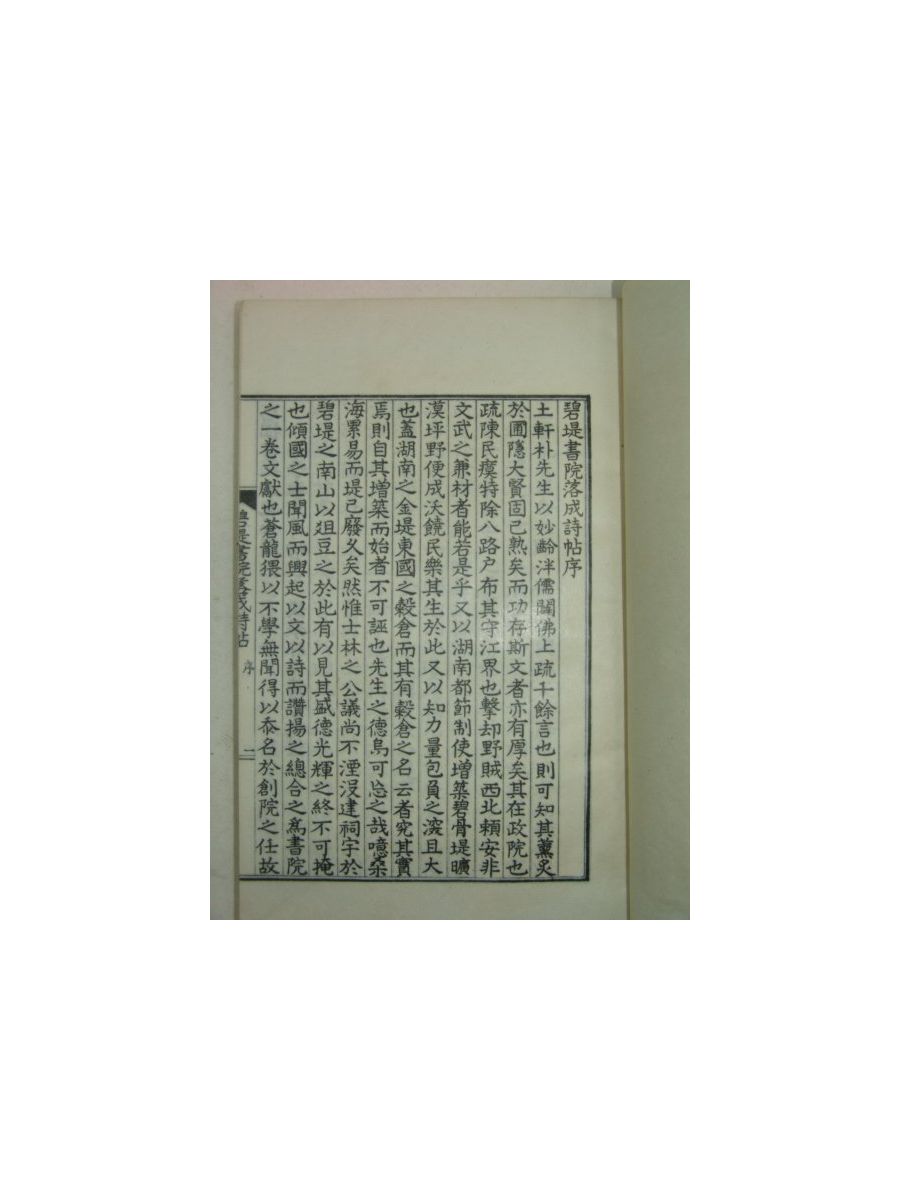 碧堤書院落成詩帖序
土軒朴先生以妙齡泮儒闢佛上疏千餘言也則可知其薰炙
於圃隱大賢固已熟矣而功存斯文者亦有厚矣其在政院也
疏陳民瘼特除八路戶布其守江界也擊却野賊西北賴安非
文武之兼材者能若是乎又以湖南都節制使增築碧骨堤曠
漠坪野便成沃饒民樂其生於此又以知力量包負之深且大
也蓋湖南之金堤東國之穀倉而其有穀倉之名云者究其實
焉則自其增築而始者不可誣也先生之德烏可忘之哉噫桑
海累易而堤已廢久矣然惟士林之公議尚不湮沒建祠宇於
碧堤之南山以俎豆之於此有以見其盛德光輝之終不可掩
也傾國之士聞風而興起以文以詩而讚揚之總合之爲書院
之一卷文獻也蒼龍猥以不學無聞得以忝名於創院之仕故
碧堤書院落成詩帖 序 二